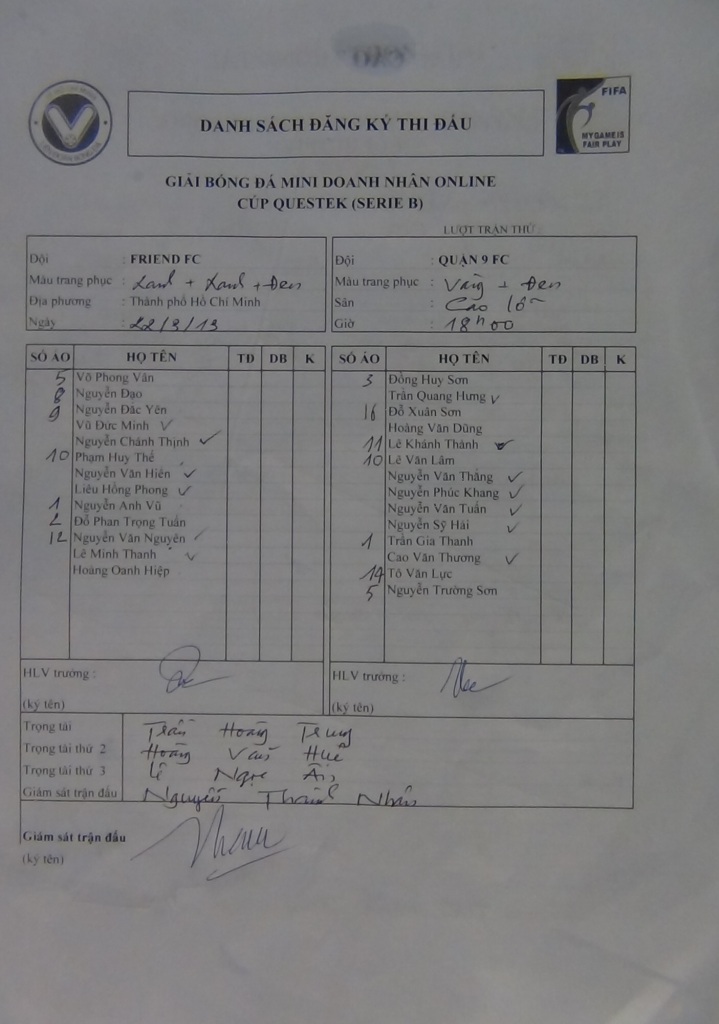 FIFA
MY GAME IS
FAIR PLAY
DANH SÁCH ĐĂNG KÝ THI ĐẤU
GIẢI BÓNG ĐÁ MINI DOANH NHÂN ONLINE
CÚP QUESTEK (SERIE B)
LƯỢT TRẬN THỨ
Đội : FRIEND FC
Màu trang phục : Xanh + Xanh + Đen
Địa phương : Thành phố Hồ Chí Minh
Ngày : 22/3/13
Đội : QUẬN 9 FC
Màu trang phục : Vàng + Đen
Sân : Cao lỗ
Giờ : 18h00
SỐ ÁO HỌ TÊN TĐ DB K
5 Võ Phong Vân
8 Nguyễn Đạo
9 Nguyễn Đắc Yên
Vũ Đức Minh ✓
Nguyễn Chánh Thịnh ✓
10 Phạm Huy Thể
Nguyễn Văn Hiên ✓
Liêu Hồng Phong ✓
1 Nguyễn Anh Vũ
2 Đỗ Phan Trọng Tuấn
12 Nguyễn Văn Nguyên
Lê Minh Thanh ✓
Hoàng Oanh Hiệp
SỐ ÁO HỌ TÊN TĐ DB K
3 Đồng Huy Sơn
Trần Quang Hưng ✓
16 Đỗ Xuân Sơn
Hoàng Văn Dũng
11 Lê Khánh Thành
10 Lê Văn Lâm
Nguyễn Văn Thắng ✓
Nguyễn Phúc Khang ✓
Nguyễn Văn Tuấn ✓
Nguyễn Sỹ Hải ✓
1 Trần Gia Thanh
Cao Văn Thương ✓
14 Tô Văn Lực
5 Nguyễn Trường Sơn
HLV trưởng :
(ký tên)
HLV trưởng :
(ký tên)
Trọng tài Trần Hoàng Trung
Trọng tài thứ 2 Hoàng Văn Huế
Trọng tài thứ 3 Lê Ngọc Ân
Giám sát trận đấu Nguyễn Thành Nhân
Giám sát trận đấu
(ký tên)